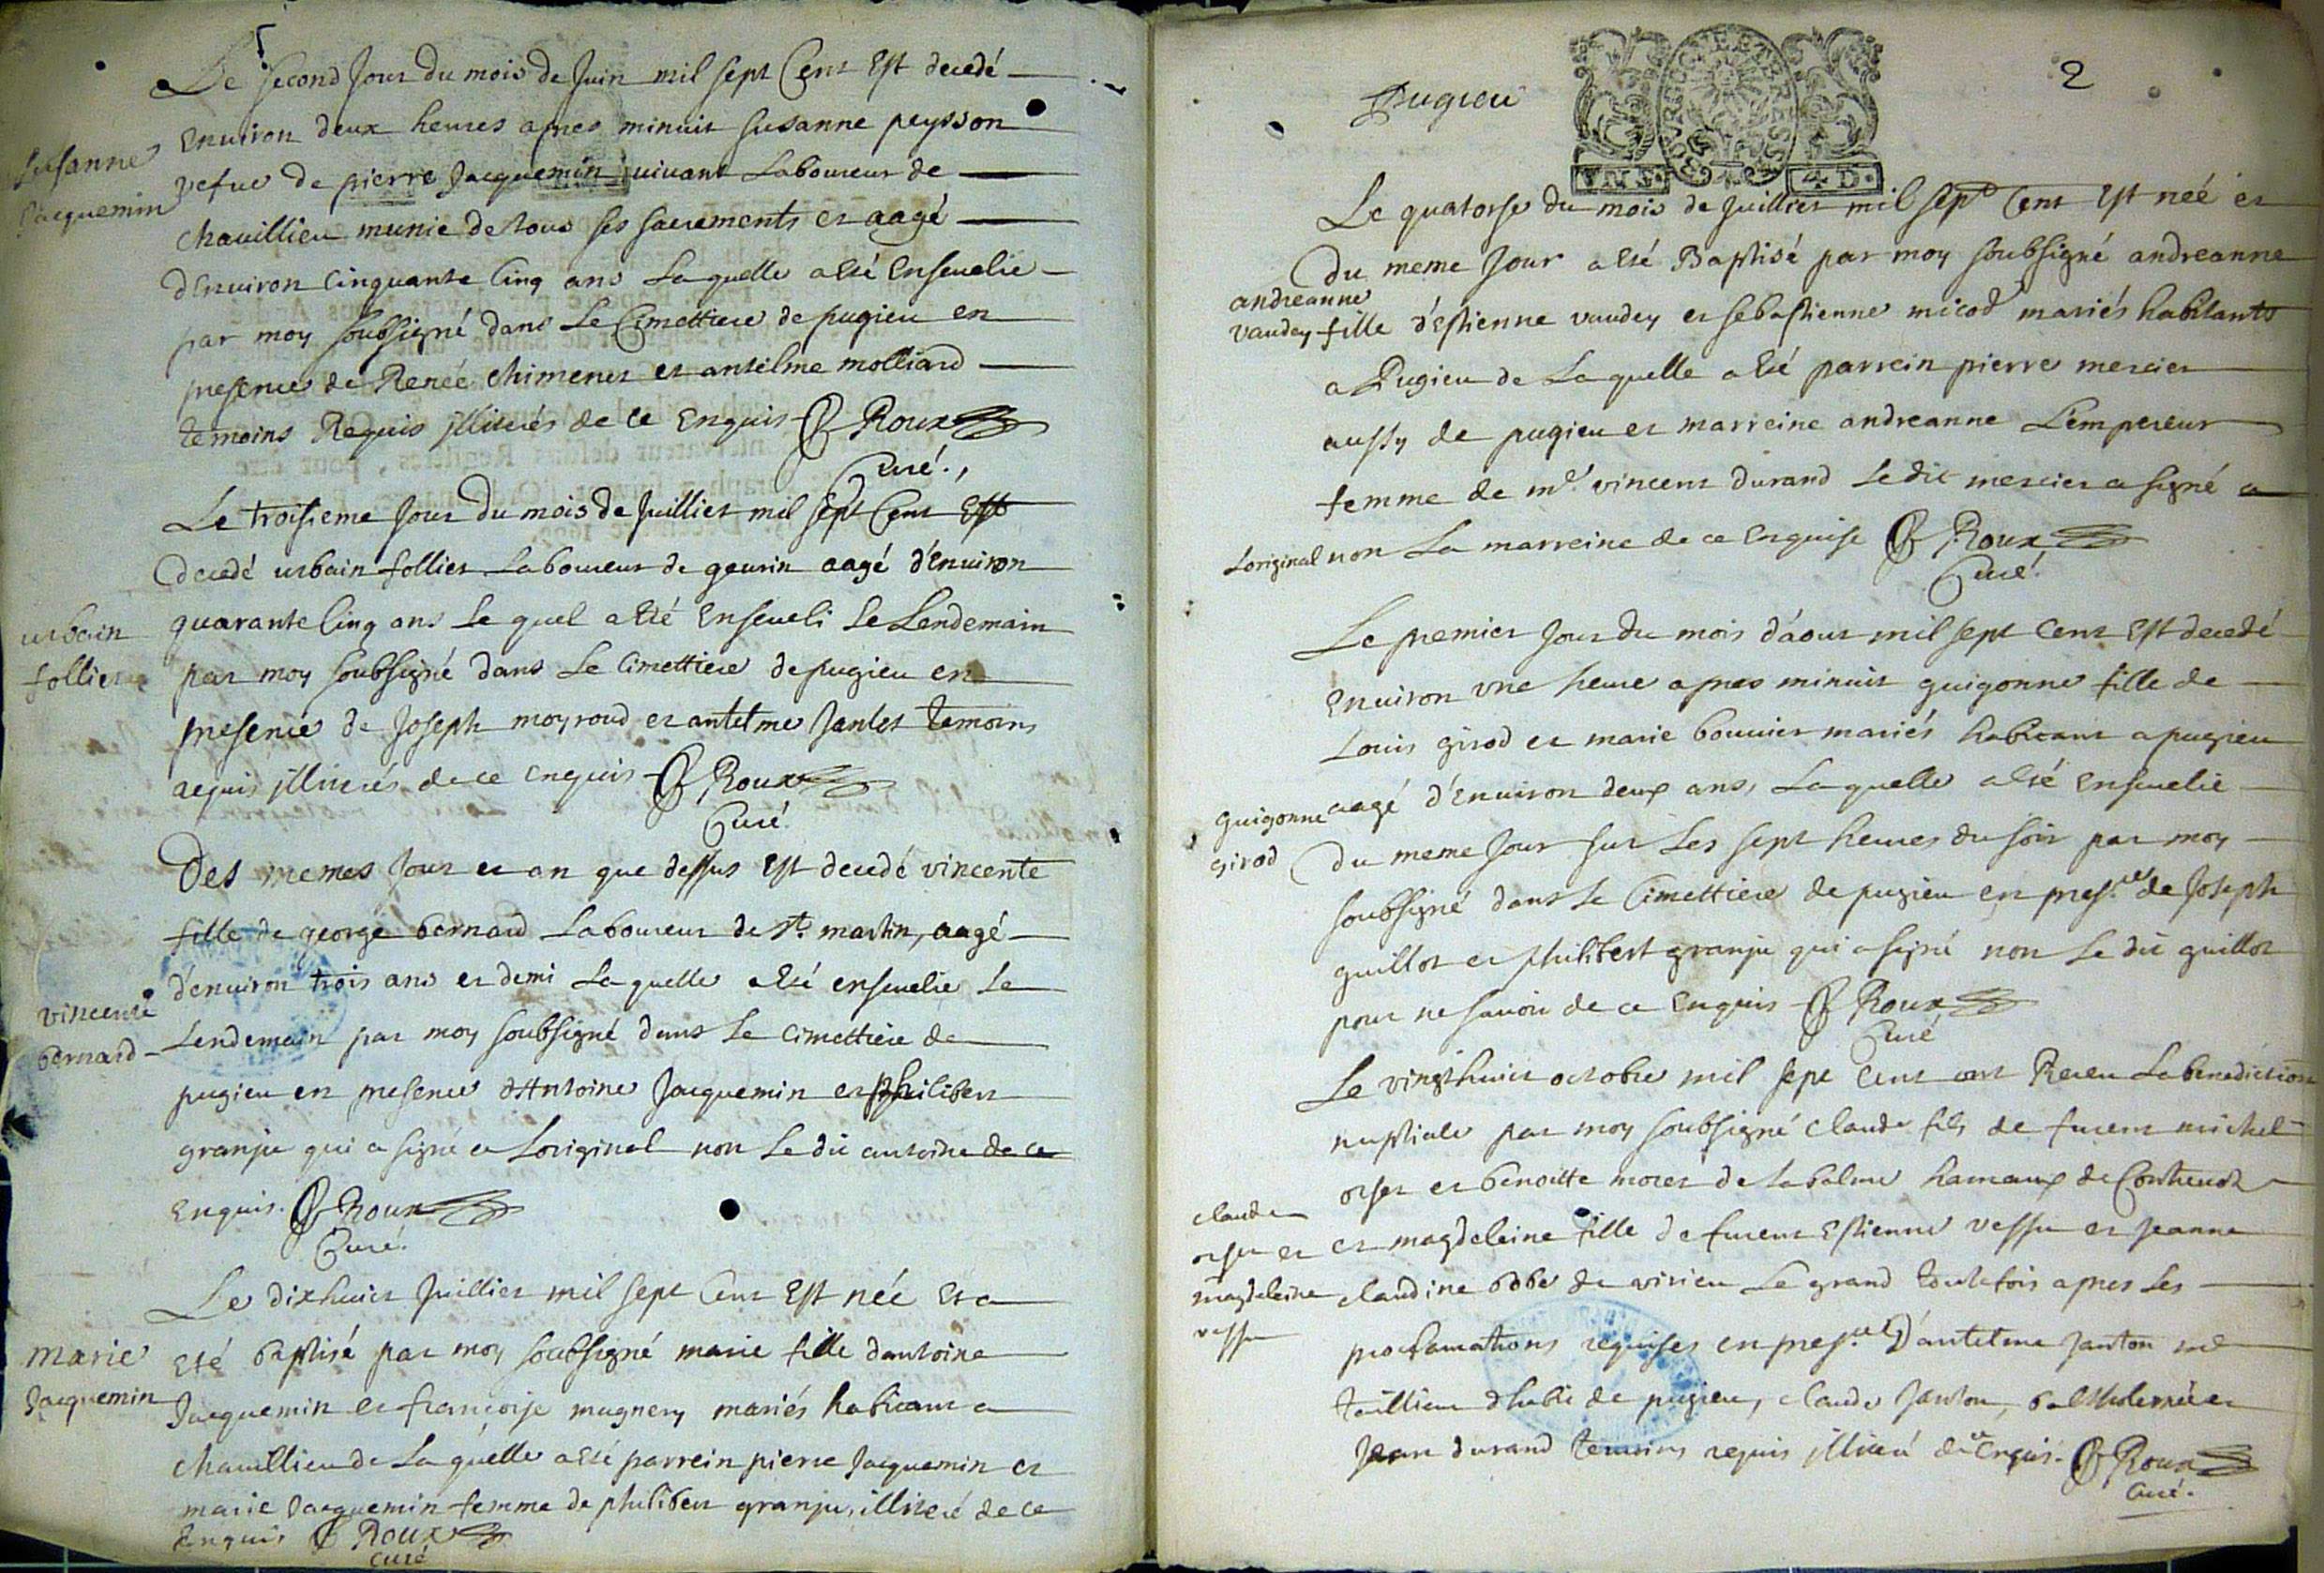 Le second Jour du mois de Juin mil sept Cent Est decedé
Environ deux heures apres minuit susanne peysson
vefue de pierre Jacquemin vivant Laboureur de
chavillieu munie de tous ses sacrements et aagé
d'Environ Cinquante Cinq ans Laquelle a Eté Ensevelie
par moy soubsigné dans Le Cimettiere de pugieu en
presence de Renée chimener et antelme molliard
temoins Requis illiterés de ce Enquis Roux
Curé.
susanne
Jacquemin
Le troisieme Jour du mois de Juillier mil sept Cent Est
decedé urbain follier Laboureur de geurin aagé d'Environ
quarante Cinq ans Le quel a Eté Enseveli Le Lendemain
par moy soubsigné dans Le Cimettiere de pugieu en
presence de Joseph moyroud et antelme Jantet temoins
requis illiterés de ce enquis Roux
Curé.
urbain
follier
Des memes Jour et an que dessus Est decedé vincente
fille de george bernard Laboureur de st. martin, aagé
d'environ trois ans et demi Laquelle a Eté ensevelie Le
Lendemain par moy soubsigné dans Le Cimettiere de
pugieu en presence d'Antoine Jacquemin et philibert
granju qui a signé a Loriginal non Le dit antoine de ce
Enquis. Roux
Curé.
vincente
bernard
Le dixhuict Juillier mil sept Cent Est née Et a
Eté baptisé par moy soubsigné marie fille dantoine
Jacquemin et françoise mugnery mariés habitant a
chavillieu de Laquelle a Eté parrein pierre Jacquemin et
marie Jacquemin femme de philibert granju, illiteré de ce
Enquis Roux
curé
marie
Jacquemin
Pugieu
2
BOURGOGNE ET BRESSE
VN S. 4 D.
Le quatorse du mois de Juillier mil sept Cent Est neé et
du meme Jour a Eté Baptisé par moy soubsigné andreanne
fille d'Estienne vaudey et sebastienne micod mariés habitants
a Pugieu de Laquelle a Eté parrein pierre mercier
aussy de pugieu et marreine andreanne Lempereur
femme de me. vincent durand Le dit mercier a signé a
Loriginal non La marreine de ce Enquise Roux
Curé.
andreanne
vaudey
Le premier Jour du mois d'aout mil sept Cent Est decedé
Environ vne heure apres minuit guigonne fille de
Louis girod et marie bouvier mariés habitant a pugieu
aagé d'Environ deux ans, Laquelle a Eté Ensevelie
du meme Jour sur Les sept heures du soir par moy
soubsigné dans Le Cimettiere de pugieu en pres.ce de Joseph
guillot et philibert granju qui a signé non Le dit guillot
pour ne savoir de ce Enquis Roux
Curé
guigonne
girod
Le vingt huict octobre mil sept Cent ont Receu La benediction
nuptiale par moy soubsigné Claude fils de furent michel
orset et benoitte moret de La balme hameaux de
et magdeleine fille de furent Estienne vessu et Jeanne
claudine bobe de virieu Le grand toutefois apres Les
proclamations requises en pres.ce D'antelme Janton me
taillieur d'habit de pugieu, Claude Janton, balthesard et
Jean durand temoins requis illiteré de ce Enquis. Roux
Curé.
claude
orset et
magdeleine
vessu